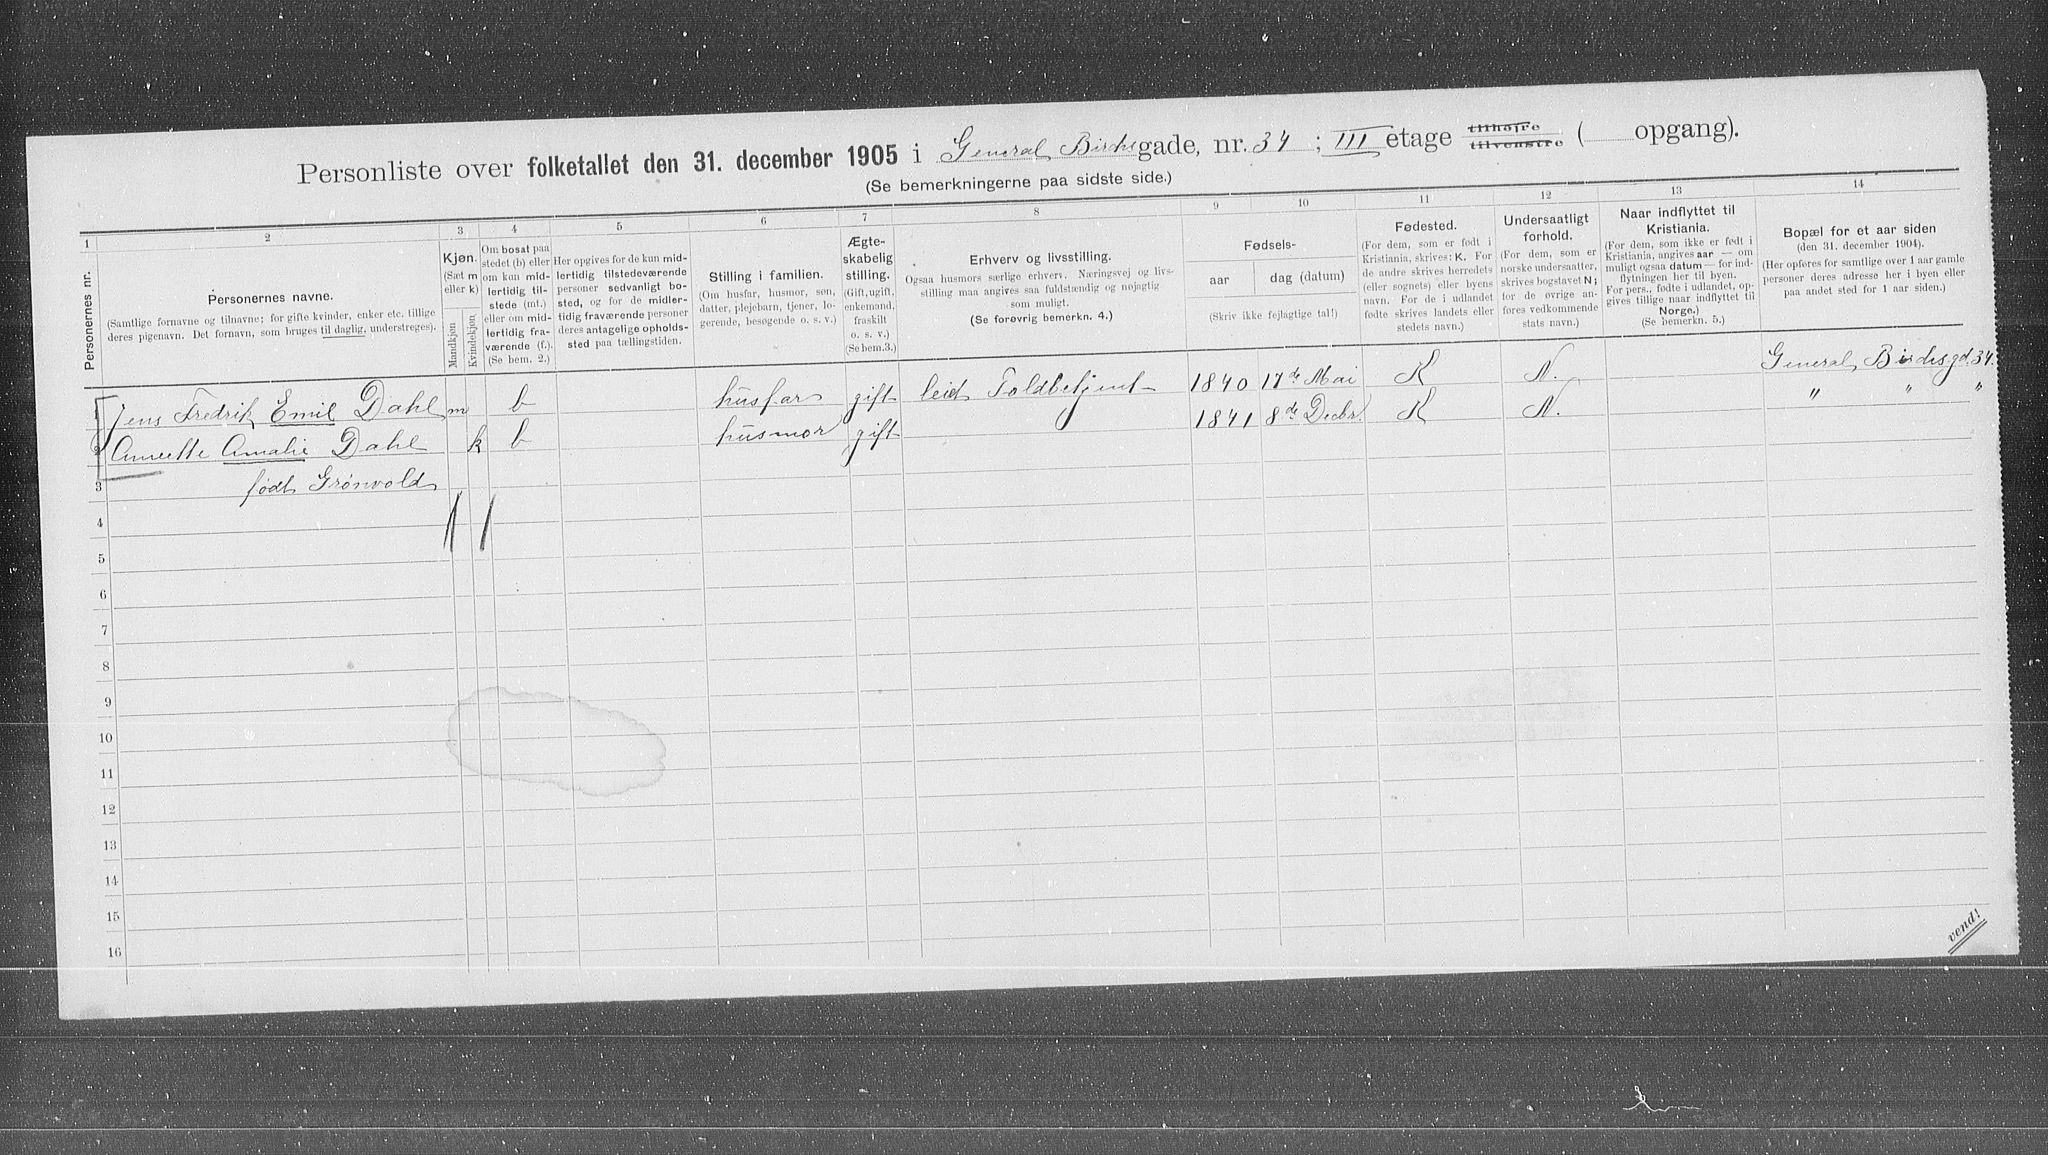 Personliste over folketallet den 31. december 1905 i General Birchsgade, nr. 34 ; III etage tilhøjre tilvenstre ( opgang).
(Se bemerkningerne paa sidste side.)
1 2 3 4 5 6 7 8 9 10 11 12 13 14
Personernes nr.
Personernes navne.
(Samtlige fornavne og tilnavne; for gifte kvinder, enker etc. tillige
deres pigenavn. Det fornavn, som bruges til daglig, understreges).
Kjøn.
(Sæt m
eller k)
Mandkjøn.
Kvindekjøn.
Om bosat paa
stedet (b) eller
om kun mid-
lertidig til-
stede (mt.)
eller om mid-
lertidig fra-
værende (f.).
(Se bem. 2.)
Her opgives for de kun mid-
lertidig tilstedeværende
personer sedvanligt bo-
sted, og for de midler-
tidig fraværende personer
deres antagelige opholds-
sted paa tællingstiden.
Stilling i familien.
(Om husfar, husmor, søn,
datter, plejebarn, tjener, lo-
gerende, besøgende o. s. v.)
Ægte-
skabelig
stilling.
(Gift, ugift,
enkemand,
fraskilt
o. s. v.)
(Se bem.3.)
Erhverv og livsstilling.
Ogsaa husmors særlige erhverv. Næringsvej og livs-
stilling maa angives saa fuldstændig og nøjagtig
som muligt.
(Se forøvrig bemerkn. 4.)
Fødsels-
aar
dag (datum)
(Skriv ikke fejlagtige tal!)
Fødested.
(For dem, som er født i
Kristiania, skrives: K. For
de andre skrives herredets
(eller sognets) eller byens
navn. For de i udlandet
fødte skrives landets eller
stedets navn.)
Undersaatligt
forhold.
(For dem, som er
norske undersaatter,
skrives bogstavet N;
for de øvrige an-
føres vedkommende
stats navn.)
Naar indflyttet til
Kristiania.
(For dem, som ikke er født i
Kristiania, angives aar — om
muligt ogsaa datum — for ind-
flytningen her til byen.
For pers., fødte i udlandet, op-
gives tillige naar indflyttet til
Norge.)
(Se bemerkn. 5.)
Bopæl for et aar siden
(den 31. december 1904).
(Her opføres for samtlige over 1 aar gamle
personer deres adresse her i byen eller
paa andet sted for 1 aar siden.)
1 Jens Fredrik Emil Dahl m b husfar gift leid Toldbetjent 1840 17de Mai K N. General Birchsgd. 34.
2 Annette Amalie Dahl k b husmor gift 1841 8de Decbr. K N. " " "
3 født Grønvold
4
5
6
7
8
9
10
11
12
13
14
15
16
vend!